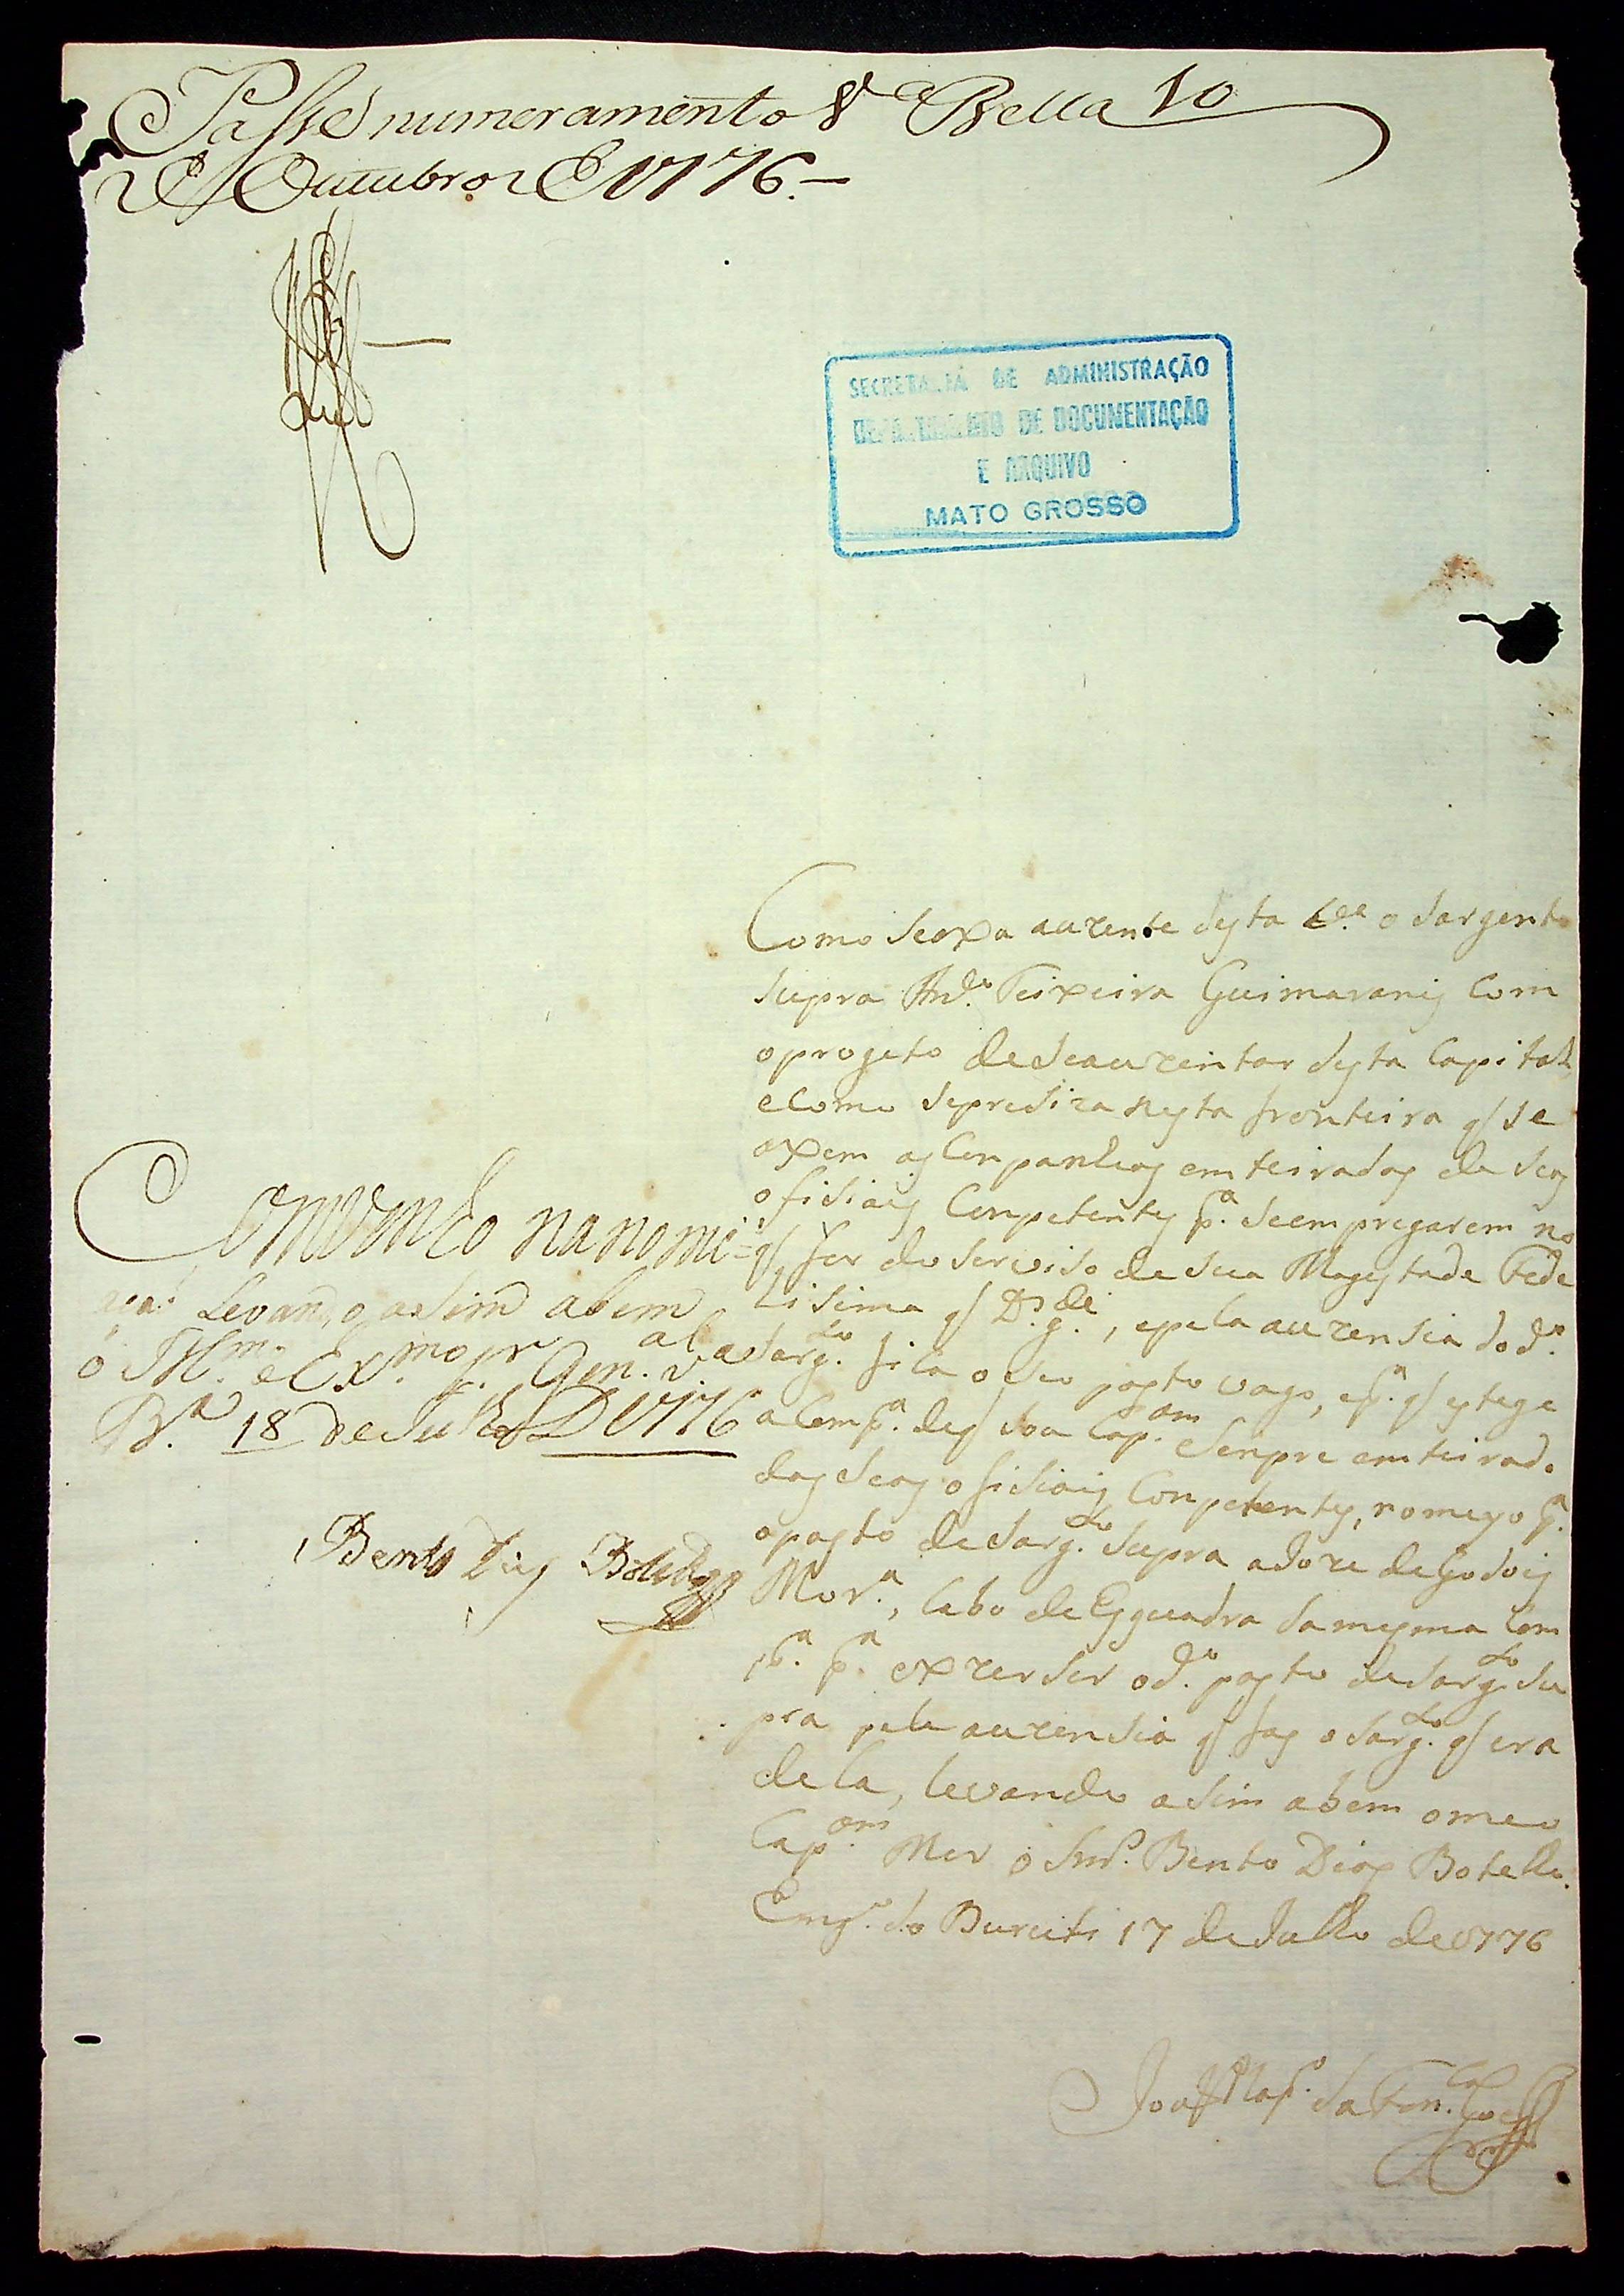 Passe numeramento V.ª Bella 10
de Outubro de 1776.
SECRETARIA DE ADMINISTRAÇÃO
DEPARTAMENTO DE DOCUMENTAÇÃO
E ARQUIVO
MATO GROSSO
Como Seaxa auzente desta o Sargento
Supra And.e Teixeira Guimaranis Com
oprogeto deSeauzentar desta Capital,
eComo Sepresiza nesta fronteira q Se
axem as Conpanhias emteiradas de Seos
ofisiais Conpetentes p.ª Seempregarem no
q for do Serviso de Sua Magestade Fede
Lisima q D.s g.de, epela auzensia dod.º
Sarg.to fica o Seo posto vago, ep.ª q estege
aComp.ª deq Sou Cap.am Senpre emteirada
dos Seos ofisiais Conpetentes, nomeyo p.ª
oposto de Sarg.to Supra a Joze de Godois
Mor.ª, Cabo de Esquadra da mesma Com
p.ª p.ª exzerser od.º posto de Sarg.to Su
pra pela auzensia q fas o Sarg.to q era
dela, levando asim abem omeo
Cap.am Mor o Snr. Bento Dias Botelho.
Eng.º do Bureiti 17 de Julho de 1776
Convenho na nomi=
açaõ Levando asim abem
o Ill.mo e Ex.mo Sr. Gen.al V.ª
B.ª 18 de Julho D 1776
Bento Dias Botelho